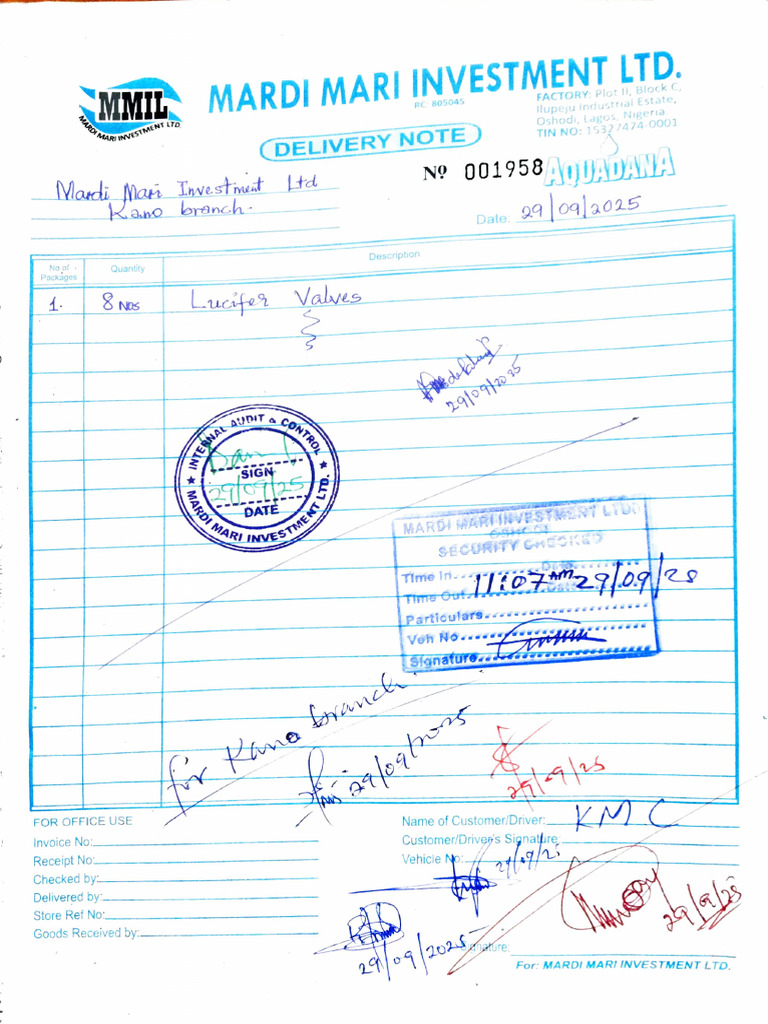 MMIL
MARDI MARI INVESTMENT LTD.
MARDI MARI INVESTMENT LTD.
RC: 805045
FACTORY: Plot II, Block C,
Ilupeju Industrial Estate,
Oshodi, Lagos, Nigeria
TIN NO: 15327474-0001
DELIVERY NOTE
Nº 001958
AQUADANA
Mardi Mari Investment Ltd
Kano branch.
Date: 29/09/2025
No of Packages
Quantity
Description
1. 8 Nos Lucifer Valves
29/09/2025
INTERNAL AUDIT & CONTROL
SIGN
29/09/25
DATE
MARDI MARI INVESTMENT LTD.
MARDI MARI INVESTMENT LTD
SECURITY CHECKED
Time In 11:07 AM Date 29/09/25
Time Out
Particulars
Veh No
Signature
for Kano branch.
29/09/2025
29/09/25
FOR OFFICE USE
Invoice No:
Receipt No:
Checked by:
Delivered by:
Store Ref No:
Goods Received by:
Name of Customer/Driver: KMC
Customer/Driver's Signature
Vehicle No:
29/09/25
29/09/2025
29/9/25
Signature:
For: MARDI MARI INVESTMENT LTD.